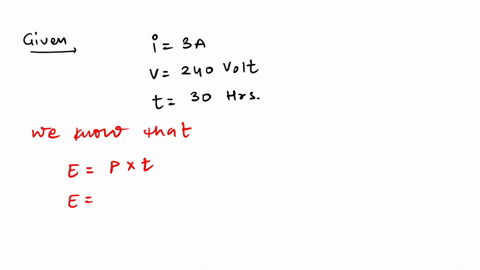 Given
i = 3A
V = 240 Volt
t = 30 Hrs.
we know that
E = P × t
E =